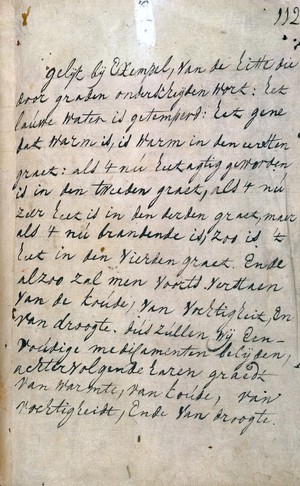 112
gelijk bij Exempel, van de Hitte die
door graden onderscheyden wort: Het
lauwe water is getempert: Het gene
dat warm is, is warm in den eersten
graet: als 't nú heetagtig geworden
is in den tweeden graet, als 't nú
zeer heet is in den derden graet, maer
als 't nú brandende is, zoo is 't
heet in den vierden graet. Ende
alzoo zal men voorts verstaen
van de koude, van vochtigheit, en
van droogte. dus zullen wij Een-
voudige medicamenten beleijden,
achtervolgende haren graedt
van warmte, van koude, van
vochtigheidt, Ende van droogte.